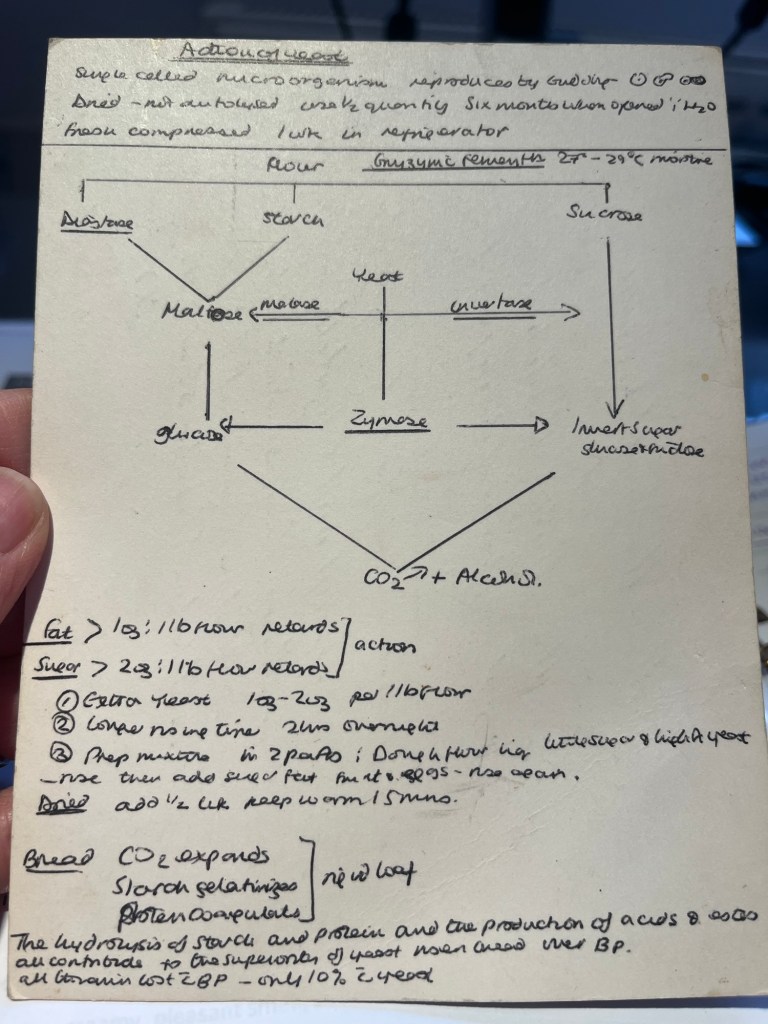 Action of yeast
Single celled microorganism reproduces by budding
Dried - not autolysed use 1/2 quantity Six months when opened H2O
Fresh compressed 1wk in refrigerator
Flour Enzymic ferments 27° - 29°C moisture
Diastase starch Sucrose
Yeast
Maltose maltase invertase
glucose Zymase Invert sugar
glucose + fructose
CO2 + Alcohol.
Fat > 1oz : 1lb flour retards
action
Sugar > 2oz : 1lb flour retards
① Extra yeast 1oz-2oz per 1lb flour
② Longer rising time 2hrs overnight
③ Prep mixture in 2 parts : Dough flour liq little sugar & high % yeast
- rise then add sugar fat fruit & eggs - rise again.
Dried add 1/2 keep warm 15mins.
Bread CO2 expands
Starch gelatinizes
rigid loaf
protein coagulates
The hydrolysis of starch and protein and the production of acids &
all contribute to the superiority of yeast risen bread over BP.
all thiamin lost c̄ BP - only 10% c̄ yeast